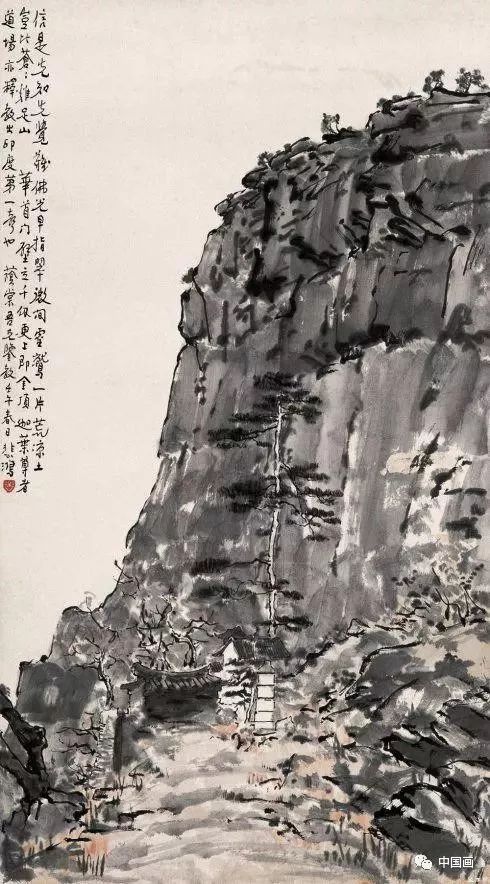 信是先知先覺難佛光早指翠微間靈鷲一片荒涼土
豈比蒼〻雞足山 華首門壁立千仞更上即金頂迦葉尊者
道場亦釋教出印度第一聲也 蔭棠吾兄鑒教壬午春日悲鴻
中国画